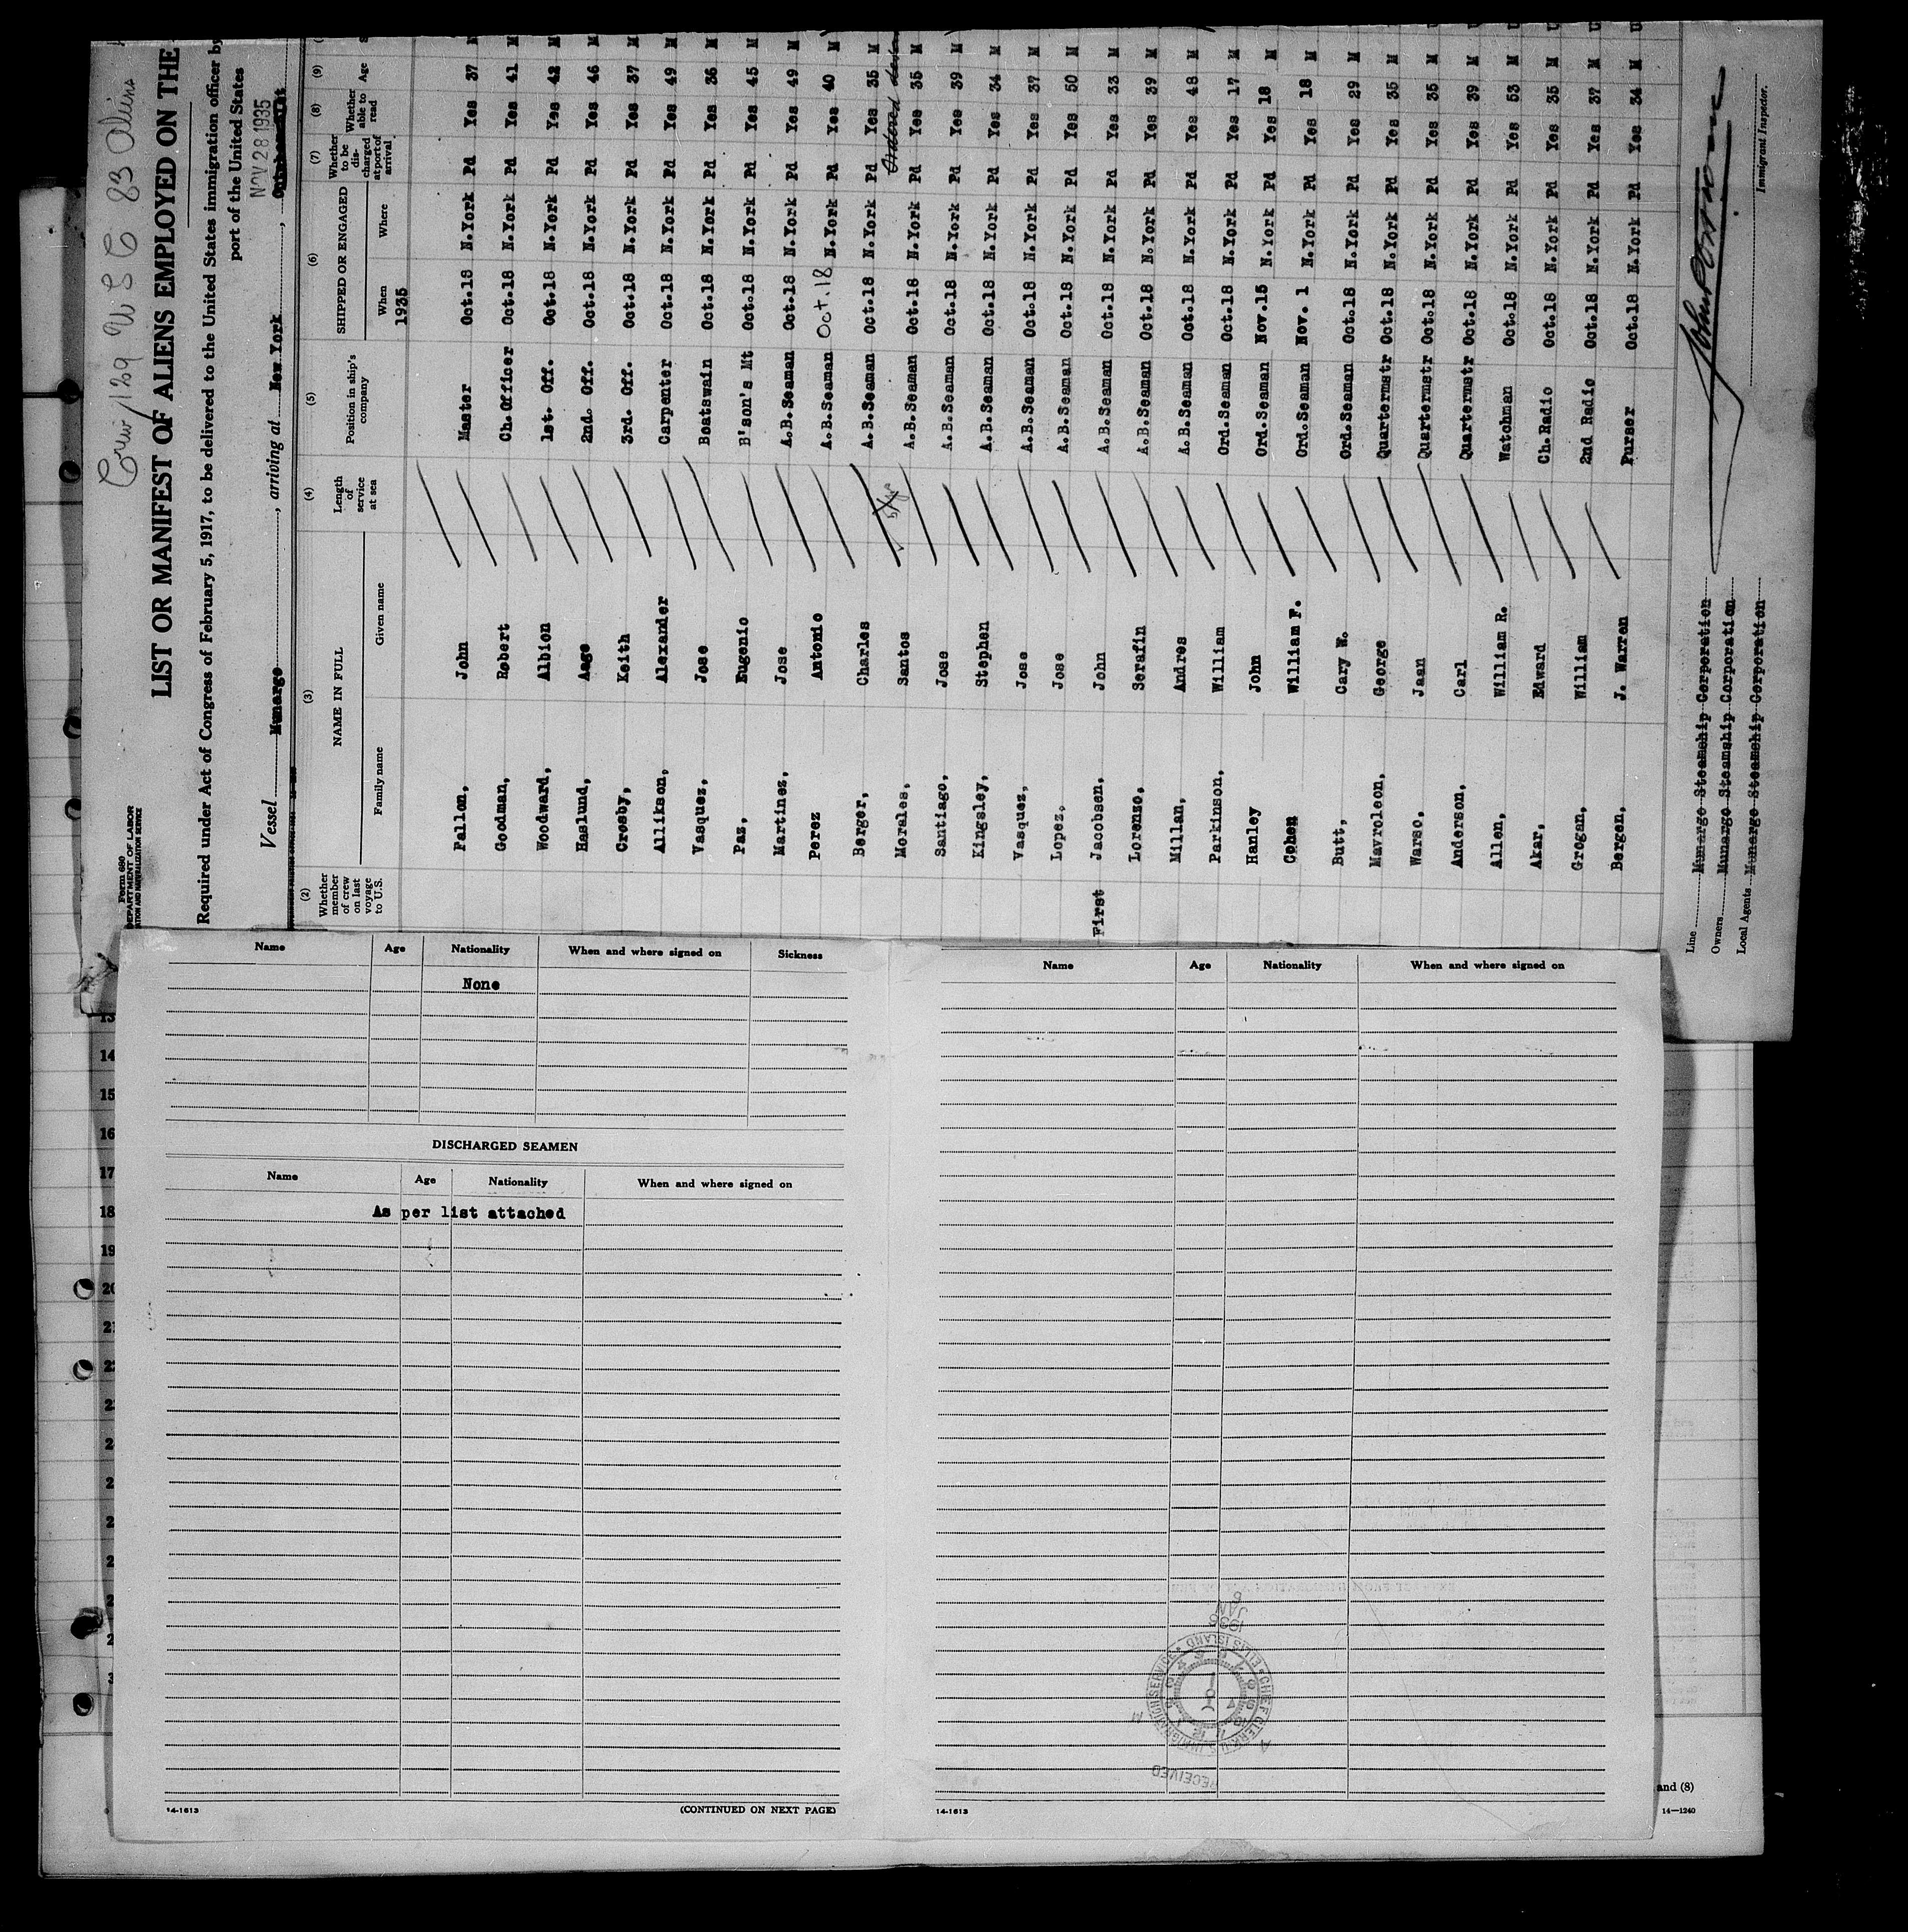 Crew 129 U S C 83 Aliens
Form 680
DEPARTMENT OF LABOR
LIST OR MANIFEST OF ALIENS EMPLOYED ON THE
Required under Act of Congress of February 5, 1917, to be delivered to the United States immigration officer by
port of the United States
Vessel Munargo, arriving at New York, NOV 28 1935
(2) (3) (4) (5) (6) (7) (8) (9)
Whether member of crew on last voyage to U.S. NAME IN FULL Length of service at sea Position in ship's company SHIPPED OR ENGAGED Whether to be discharged at port of arrival Whether able to read Age
Family name Given name When Where
1935
Fallon, John Master Oct.18 N.York Pd Yes 37
Goodman, Robert Ch.Officer Oct.18 N.York Pd Yes 41 M
Woodward, Albion 1st. Off. Oct.18 N.York Pd Yes 42 M
Haslund, Aage 2nd. Off. Oct.18 N.York Pd Yes 46 M
Crosby, Keith 3rd. Off. Oct.18 N.York Pd Yes 37 M
Allikson, Alexander Carpenter Oct.18 N.York Pd Yes 49 M
Vasquez, Jose Boatswain Oct.18 N.York Pd Yes 36 M
Paz, Eugenio B'son's Mt Oct.18 N.York Pd Yes 45 M
Martinez, Jose A.B.Seaman Oct.18 N.York Pd Yes 49 M
Perez Antonio A.B.Seaman Oct.18 N.York Pd Yes 40 M
Berger, Charles A.B.Seaman Oct.18 N.York Pd Yes 35 M
Morales, Santos A.B.Seaman Oct.18 N.York Pd Yes 35 M
Santiago, Jose A.B.Seaman Oct.18 N.York Pd Yes 39 M
Kingsley, Stephen A.B.Seaman Oct.18 N.York Pd Yes 34 M
Vasquez, Jose A.B.Seaman Oct.18 N.York Pd Yes 37 M
Lopez, Jose A.B.Seaman Oct.18 N.York Pd Yes 50 M
First Jacobsen, John A.B.Seaman Oct.18 N.York Pd Yes 33 M
Lorenzo, Serafin A.B.Seaman Oct.18 N.York Pd Yes 39 M
Millan, Andres A.B.Seaman Oct.18 N.York Pd Yes 48 M
Parkinson, William Ord.Seaman Oct.18 N.York Pd Yes 17 M
Hanley John Ord.Seaman Nov.15 N.York Pd Yes 18 M
Cohen William F. Ord.Seaman Nov. 1 N.York Pd Yes 18 M
Butt, Cary W. Ord.Seaman Oct.18 N.York Pd Yes 29 M
Mavroleon, George Quartermstr Oct.18 N.York Pd Yes 35 M
Warso, Jaan Quartermstr Oct.18 N.York Pd Yes 35 M
Anderson, Carl Quartermstr Oct.18 N.York Pd Yes 39 M
Allen, William R. Watchman Oct.18 N.York Pd Yes 53 M
Akar, Edward Ch.Radio Oct.18 N.York Pd Yes 35 M
Grogan, William 2nd Radio Oct.18 N.York Pd Yes 37 M
Bergen, J. Warren Purser Oct.18 N.York Pd Yes 34 M
Line Munargo Steamship Corporation
Owners Munargo Steamship Corporation
Local Agents Munargo Steamship Corporation
Immigrant Inspector.
Name Age Nationality When and where signed on Sickness
None
DISCHARGED SEAMEN
Name Age Nationality When and where signed on
As per list attached
14-1613 (CONTINUED ON NEXT PAGE)
Name Age Nationality When and where signed on
RECEIVED
CHIEF CLERK U.S. IMMIGRATION SERVICE ELLIS ISLAND
1936 JAN 6
14-1613
13
14
15
16
17
18
19
and (8)
14—1240